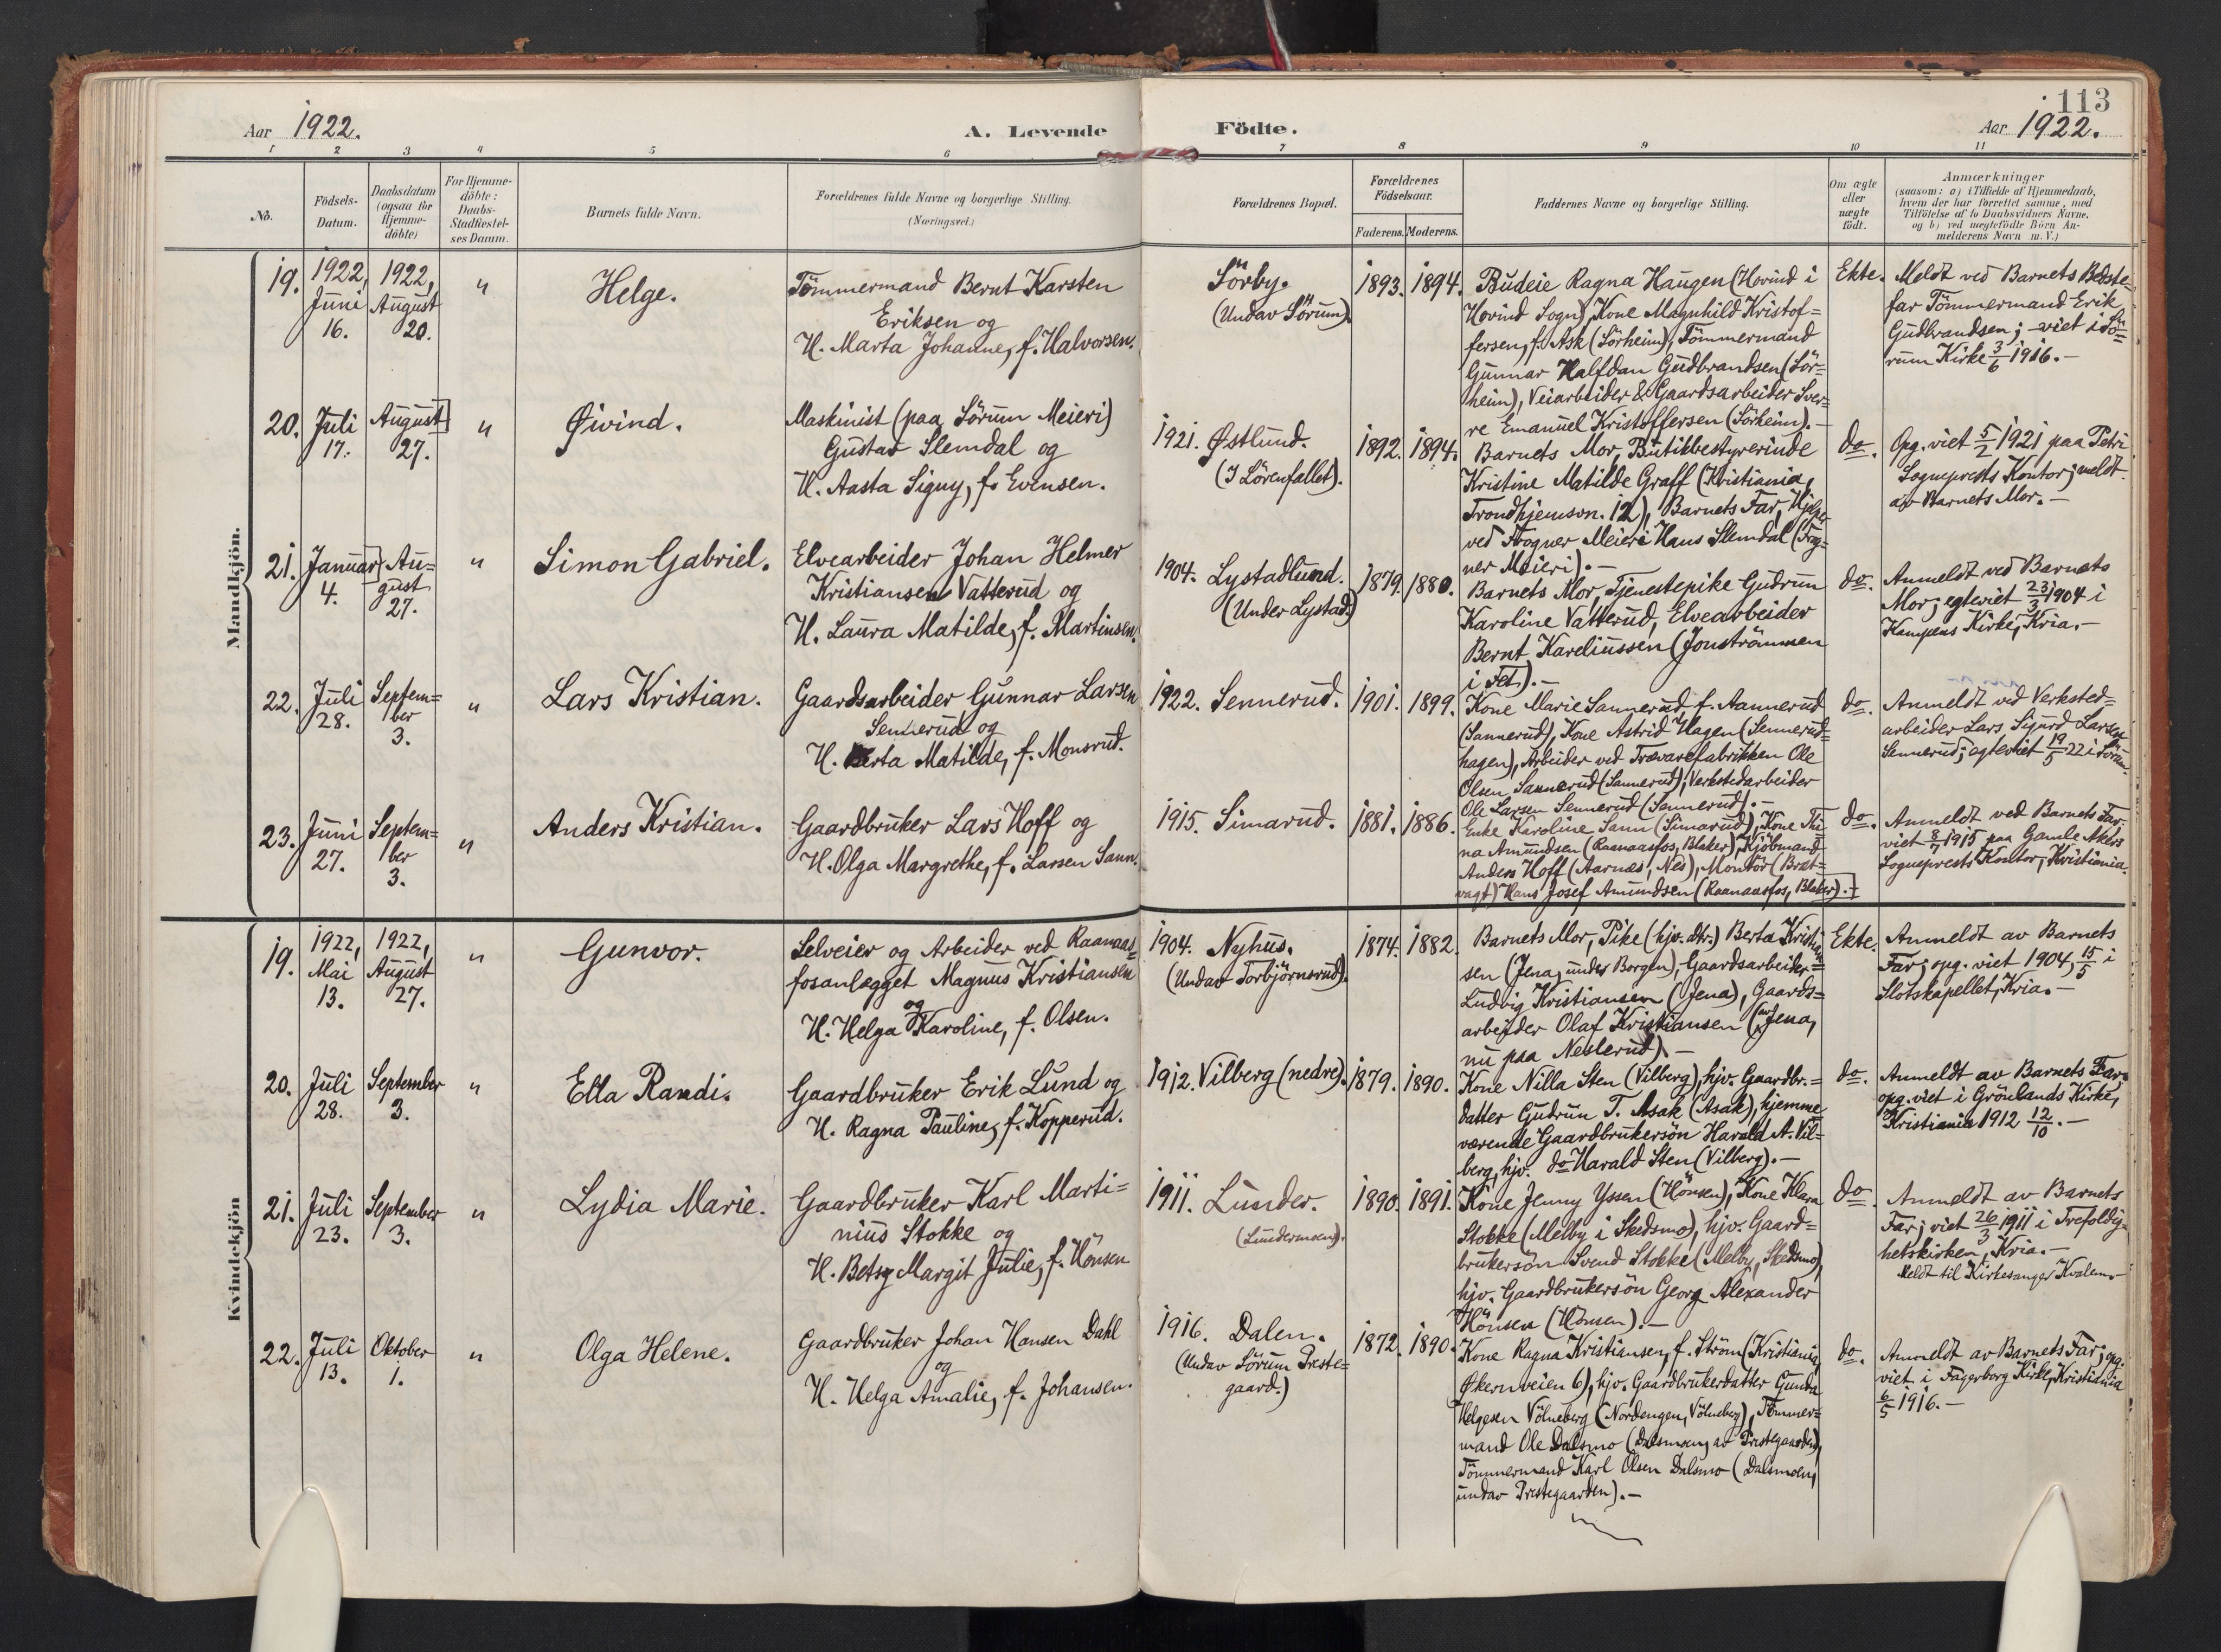 113
Aar 1922.
A. Levende Födte.
Aar 1922.
1 2 3 4 5 6 7 8 9 10 11
No.
Födsels-
Datum.
Daabsdatum
(ogsaa for
Hjemme-
döbte)
For Hjemme-
döbte:
Daabs-
Stadfæstel-
ses Datum.
Barnets fulde Navn.
Forældrenes fulde Navne og borgerlige Stilling.
(Næringsvei.)
Forældrenes Bopæl.
Forældrenes
Födselsaar.
Faderens. Moderens.
Faddernes Navne og borgerlige Stilling.
Om ægte
eller
uægte
födt.
Anmærkninger
(saasom: a) i Tilfælde af Hjemmedaab,
hvem der har forrettet samme, med
Tilföielse af to Daabsvidners Navne,
og b) ved uægtefödte Börn An-
melderens Navn m. V.)
Mandkjön.
19.
1922,
Juni
16.
1922,
August
20.
"
Helge.
Tömmermand Bernt Karsten
Eriksen og
H. Marta Johanne, f. Halvorsen.
Sörby.
(Undav Sörum).
1893. 1894.
Budeie Ragna Haugen (Hovind i
Hovind Sogn), Kone Magnhild Kristof=
fersen, f. Ask (Sörheim), Tömmermand
Gunnar Halfdan Gudbrandsen (Sör=
heim), Veiarbeider & Gaardsarbeider Sver=
re Emanuel Kristoffersen (Sörheim).-
Ekte.
Meldt ved Barnets Bedste=
far Tömmermand Erik
Gudbrandsen; - viet i Sö=
rum Kirke 3/6 1916.-
20.
Juli
17.
August
27.
"
Øivind.
Maskinist (paa Sörum Meieri)
Gustav Slemdal og
H. Aasta Signy, f. Evensen.
1921. Østlund.
(I Lörenfallet).
1892. 1894.
Barnets Mor, Butikbestyrerinde
Kristine Matilde Graff (Kristiania,
Trondhjemsvn. 12), Barnets Far, Hjelper
ved Frogner Meieri Hans Slemdal (Frog=
ner Meieri).-
do.
Opg. viet 5/2 1921 paa Petri
Sogneprests Kontor; meldt
av Barnets Mor.-
21.
Januar
4.
Au=
gust
27.
"
Simon Gabriel.
Elvearbeider Johan Helmer
Kristiansen Vatterud og
H. Laura Matilde, f. Martinsen.
1904. Lystadlund.
(Under Lystad.)
1879. 1880.
Barnets Mor, Tjenestepike Gudrun
Karoline Vatterud, Elvearbeider
Bernt Kareliussen (Jonströmmen
i Fet).-
do.
Anmeldt ved Barnets
Mor; egteviet 23/3 1904 i
Kampens Kirke, Kria.-
22.
Juli
28.
Septem=
ber
3.
"
Lars Kristian.
Gaardsarbeider Gunnar Larsen
Sennerud og
H. Berta Matilde, f. Monsrud.
1922. Sennerud.
1901. 1899.
Kone Marie Sannerud, f. Aannerud
(Sannerud), Kone Astrid Hagen (Sennerud=
hagen), Arbeider ved Trævarefabrikken Ole
Olsen Sannerud (Sannerud), Verkstedarbeider
Ole Larsen Sennerud (Sennerud).-
do.
Anmeldt ved Verksted=
arbeider Lars Sigurd Larsen
Sennerud; egteviet 19/5 22 i Sörum.
23.
Juni
27.
Septem=
ber
3.
"
Anders Kristian.
Gaardbruker Lars Hoff og
H. Olga Margrethe, f. Larsen Sann.
1915. Simarud.
1881. 1886.
Enke Karoline Sann (Simarud), Kone Thi=
na Amundsen (Raanaasfos, Blaker), Kjöbmand
Anders Hoff (Aarnæs, Nes), Montör (Brat=
vagt) Hans Josef Amundsen (Raanaasfos, Blaker).-
do.
Anmeldt ved Barnets Far.
viet 8/7 1915 paa Gamle Akers
Sogneprests Kontor, Kristiania.
Kvindekjön
19.
1922,
Mai
13.
1922,
August
27.
"
Gunvor.
Selveier og Arbeider ved Raanaas=
fosanlægget Magnus Kristiansen
og
H. Helga Karoline, f. Olsen.
1904. Nyhus.
(Undav Torbjörnsrud).
1874. 1882.
Barnets Mor, Pike (hjv. dtr.) Berta Kristian
sen (Jena, under Borgen), Gaardsarbeider=
Ludvig Kristiansen (Jena), Gaards=
arbeider Olaf Kristiansen (av Jena,
nu paa Neslerud).-
Ekte.
Anmeldt av Barnets
Far; opg. viet 1904, 15/5 i
Slotskapellet, Kria.-
20.
Juli
28.
September
3.
"
Ella Randi.
Gaardbruker Erik Lund og
H. Ragna Pauline, f. Kopperud.
1912. Vilberg (nedre).
1879. 1890.
Kone Nilla Sten (Vilberg), hjv. Gaardbr.=
datter Gudrun T. Asak (Asak), hjemme
værende Gaardbrukersön Harald A. Vil=
berg, hjv. do Harald Sten (Vilberg).-
do.
Anmeldt av Barnets Far,
opg. viet i Grönlands Kirke,
Kristiania 1912 12/10.-
21.
Juli
23.
September
3.
"
Lydia Marie.
Gaardbruker Karl Marti=
nius Stokke og
H. Betsy Margit Julie, f. Hönsen
1911. Lunder.
(Lundermoen).
1890. 1891.
Kone Jenny Yssen (Hönsen), Kone Klara
Stokke (Melby i Skedsmo), hjv. Gaard=
brukersön Svend Stokke (Melby, Skedsmo),
hjv. Gaardbrukersön Georg Alexander
Hönsen (Hönsen).-
do.
Anmeldt av Barnets
Far; viet 26/3 1911 i Trefoldig=
hetskirken, Kria.-
Meldt til Kirkesanger Kvalem.-
22.
Juli
13.
Oktober
1.
"
Olga Helene.
Gaardbruker Johan Hansen Dahl
og
H. Helga Amalie, f. Johansen.
1916. Dalen.
(Undav Sörum Preste=
gaard.)
1872. 1890.
Kone Ragna Kristiansen, f. Ström (Kristiania,
Økernveien 6), hjv. Gaardbrukerdatter Gunda
Helgesen Völneberg (Nordengen, Völneberg), Tömmer=
mand Ole Dalsmo (Dalsmoen, av Prestegaarden),
Tömmermand Karl Olsen Dalsmo (Dalsmoen,
undav Prestegaarden).-
do.
Anmeldt av Barnets Far; opg.
viet i Fagerborg Kirke, Kristiania
6/5 1916.-